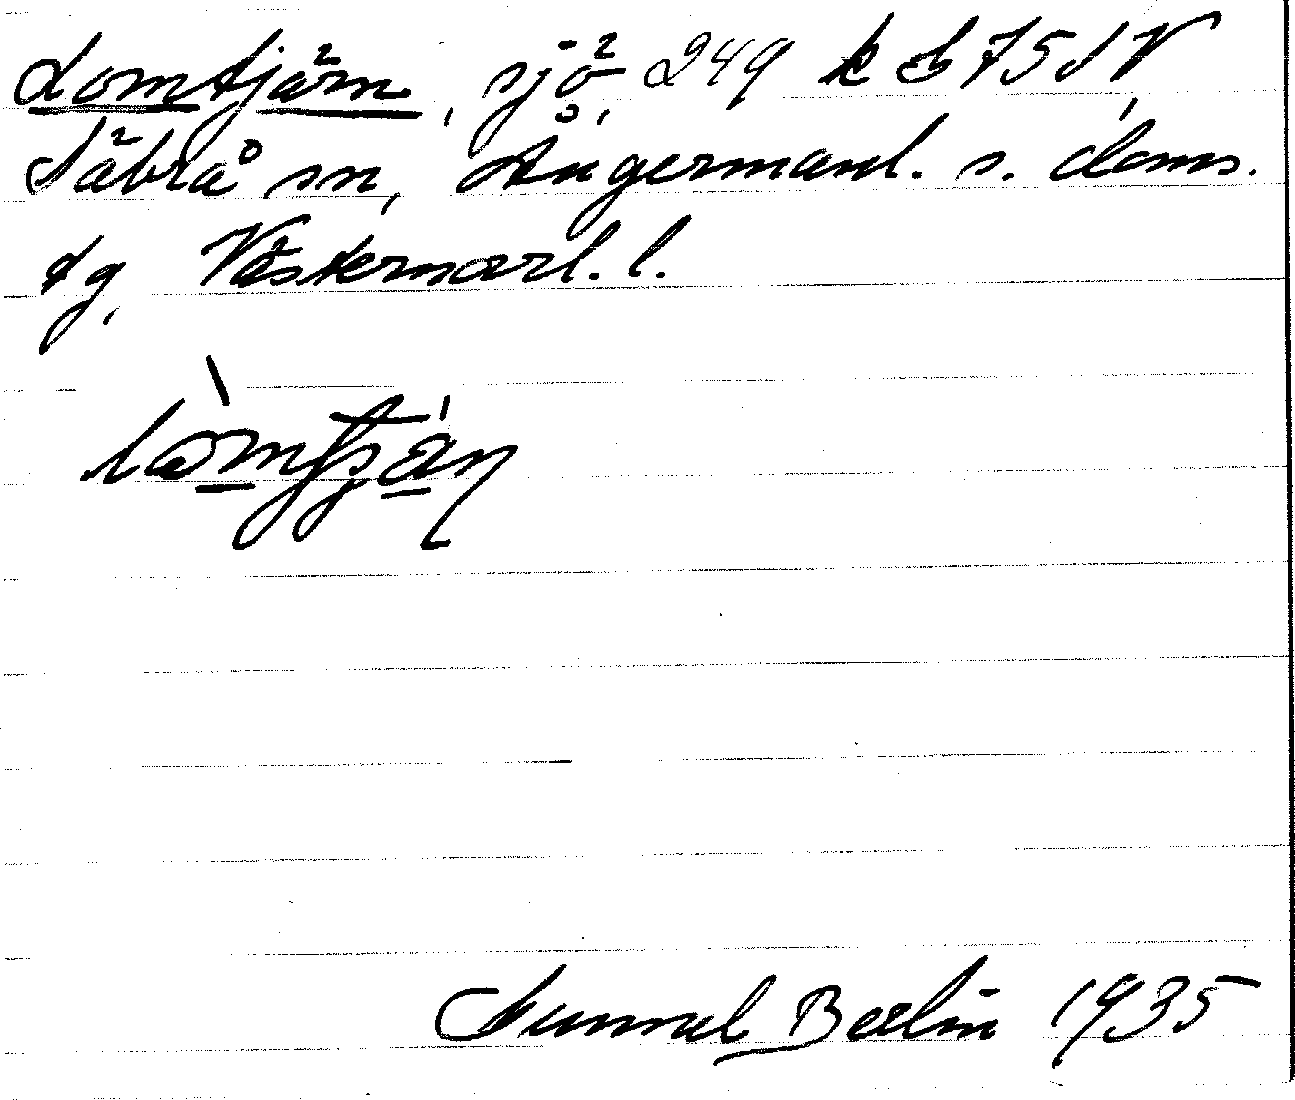 Lomtjärn, sjö, 249 k b 75 SV,
Säbrå sn, Ångermanl. s. doms.
tg, Västernorrl. l.
Gunnel Berlin 1935